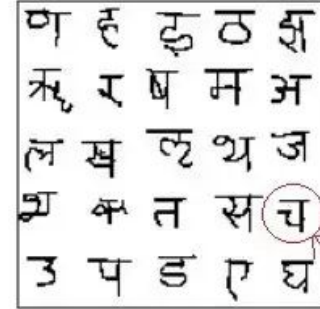 ण ह ड़ ठ झ
ऋ र ष म अ
ल ख ल थ ज
श क त स च
उ प ड ए घ